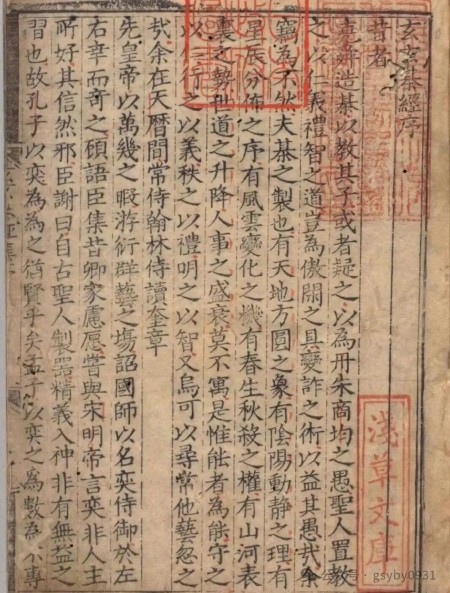 玄玄棊經序
昔者
堯舜造棊以教其子或者疑之以為丹朱商均之愚聖人置教
之以仁義禮智之道豈為傲閑之具變詐之術以益其愚哉余
竊為不然夫棊之製也有天地方圓之象有陰陽動静之理有
星辰分佈之序有風雲變化之機有春生秋殺之權有山河表
裏之勢世道之升降人事之盛衰莫不寓是惟能者為能守之
以仁行之以義秩之以禮明之以智又烏可以尋常他藝忽之
哉余在天曆間常侍翰林侍讀奎章
先皇帝以萬幾之暇游衍群藝之塲詔國師以名奕侍御於左
右幸而奇之碩語臣集昔卿家慮愿嘗與宋明帝言奕非人主
所好其信然邪臣謝曰自古聖人製噐精義入神非有無益之
習也故孔子以奕為為之猶賢乎矣孟子以奕之為數為小專
淺草文庫
公众号 · gsyby0931